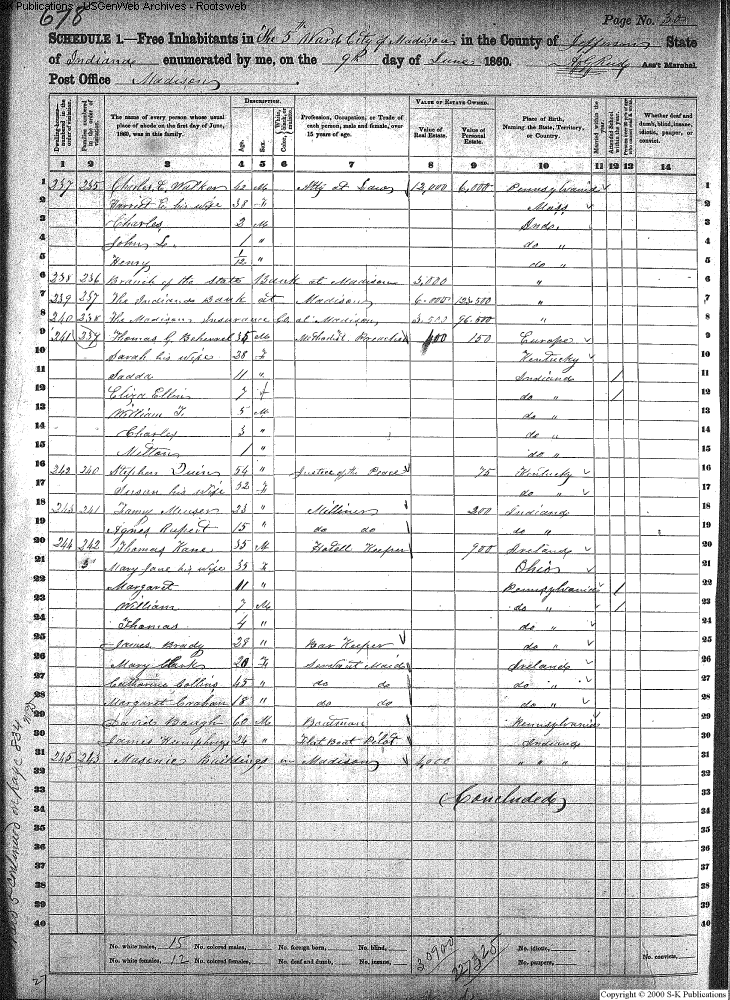 S-K Publications - USGenWeb Archives - Rootsweb
678
Page No.
SCHEDULE 1.—Free Inhabitants in The 5th Ward City of Madison in the County of Jefferson State
of Indiana enumerated by me, on the 9th day of June 1860. Ass't Marshal.
Post Office Madison
Dwelling-houses—numbered in the order of visitation.
Families numbered in the order of visitation.
The name of every person whose usual place of abode on the first day of June, 1860, was in this family.
DESCRIPTION.
Age. Sex. Color, White, black, or mulatto.
Profession, Occupation, or Trade of each person, male and female, over 15 years of age.
VALUE OF ESTATE OWNED.
Value of Real Estate. Value of Personal Estate.
Place of Birth, Naming the State, Territory, or Country.
Married within the year. Attended School within the year.
Whether deaf and dumb, blind, insane, idiotic, pauper, or convict.
1 2 3 4 5 6 7 8 9 10 11 12 13 14
1 237 235 Charles E. Walker 42 M Atty at Law 12,000 6,000 Pennsylvania 1
2 Harriet E. his wife 38 F Mass 2
3 Charles 2 M Inda. 3
4 John L. 1 " do " 4
5 Henry 1/12 " do " 5
6 238 236 Branch of the State Bank at Madison 3,000 " 6
7 239 237 The Indiana Bank at Madison 6,000 123,500 " 7
8 240 238 The Madison Insurance Co. at Madison 3,500 96,500 " 8
9 241 239 Thomas G 35 M Methodist Preacher 400 150 Europe 9
10 Sarah his wife 28 F Kentucky 10
11 Sadda 11 " Indiana / 11
12 Eliza Ellin 7 F do " / 12
13 William T. 5 M do " 13
14 Charles 3 " do " 14
15 Melton 1 " do " 15
16 242 240 Stephen 54 " Justice of the Peace 75 Kentucky 16
17 Susan his wife 32 F do " 17
18 243 241 Fanny Menser 23 " Milliner 200 Indiana 18
19 Agnes Rupert 15 " do do do " 19
20 244 242 Thomas Kane 35 M Hotell Keeper 900 Ireland 20
21 Mary Jane his wife 35 F Ohio 21
22 Margaret 11 " Pennsylvania / 22
23 William 7 M do " / 23
24 Thomas 4 " do " 24
25 James Brady 28 " Bar Keeper do " 25
26 Mary 20 F Servant Maid Ireland 26
27 Catharine Collins 45 " do do do " 27
28 Margaret Graham 18 " do do do " 28
29 David Baugh 60 M Boatman Pennsylvania 29
30 James Humphrey 24 " Flat Boat Pilot Indiana 30
31 245 243 Masonic Buildings in Madison 4,000 " " " 31
32 32
33 Concluded 33
34 34
35 35
36 36
37 37
38 38
39 39
40 40
No. white males, 15 No. colored males, No. foreign born, No. blind, 30900 227325 No. idiotic,
No. white females, 12 No. colored females, No. deaf and dumb, No. insane, No. paupers, No. convicts,
continued on page 834
27
Copyright © 2000 S-K Publications